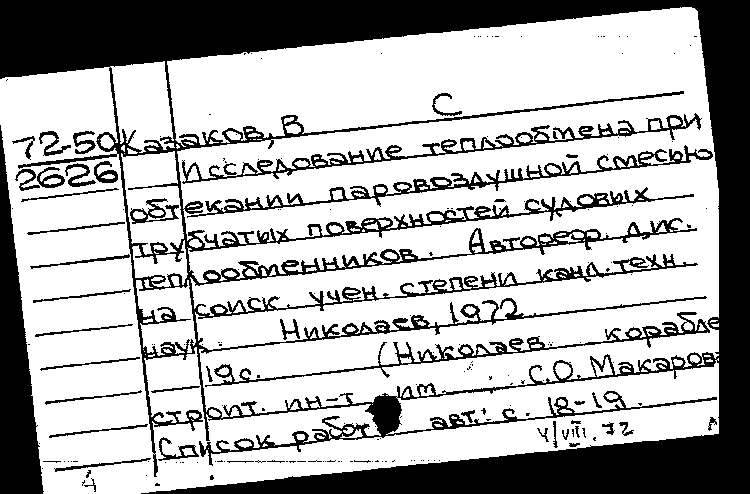 С
72-50 Казаков, В
2626 Исследование теплообмена при
обтекании паровоздушной смесью
трубчатых поверхностей судовых
теплообменников. Автореф. дис.
на соиск. учен. степени канд. техн.
наук. Николаев, 1972
19с. (Николаев корабле
строит. ин-т им. С.О. Макарова
Список работ авт.: с. 18-19.
V/VIII.72
4